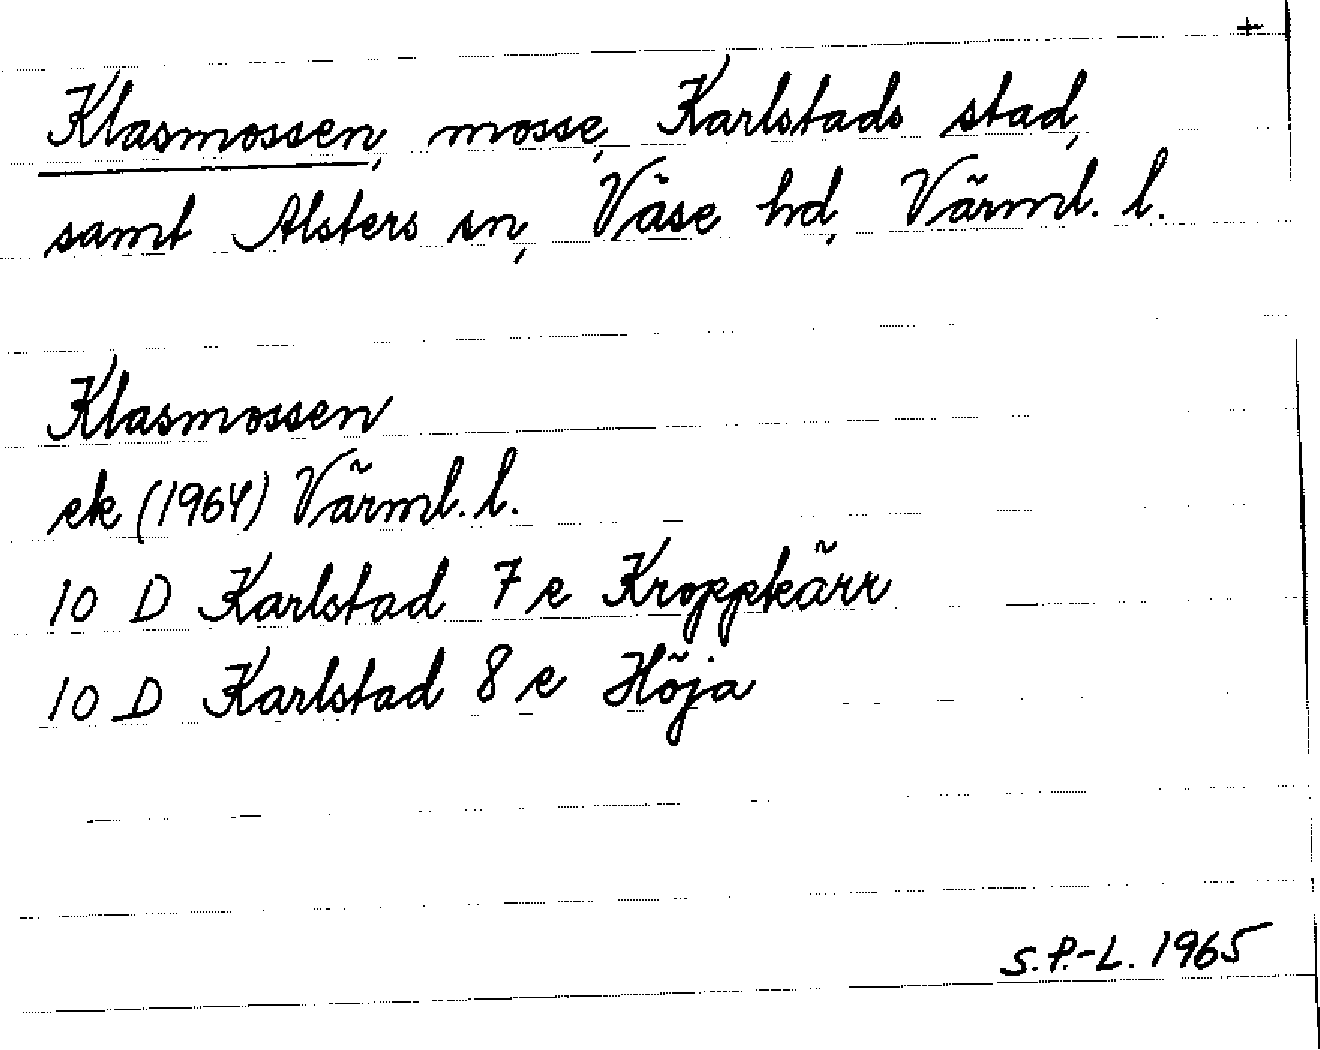 +
Klasmossen, mosse, Karlstads stad,
samt Alsters sn, Väse hd, Värml. l.
Klasmossen
ek (1964) Värml. l.
10 D Karlstad 7 e Kroppkärr
10 D Karlstad 8 e Höja
S.P.-L. 1965